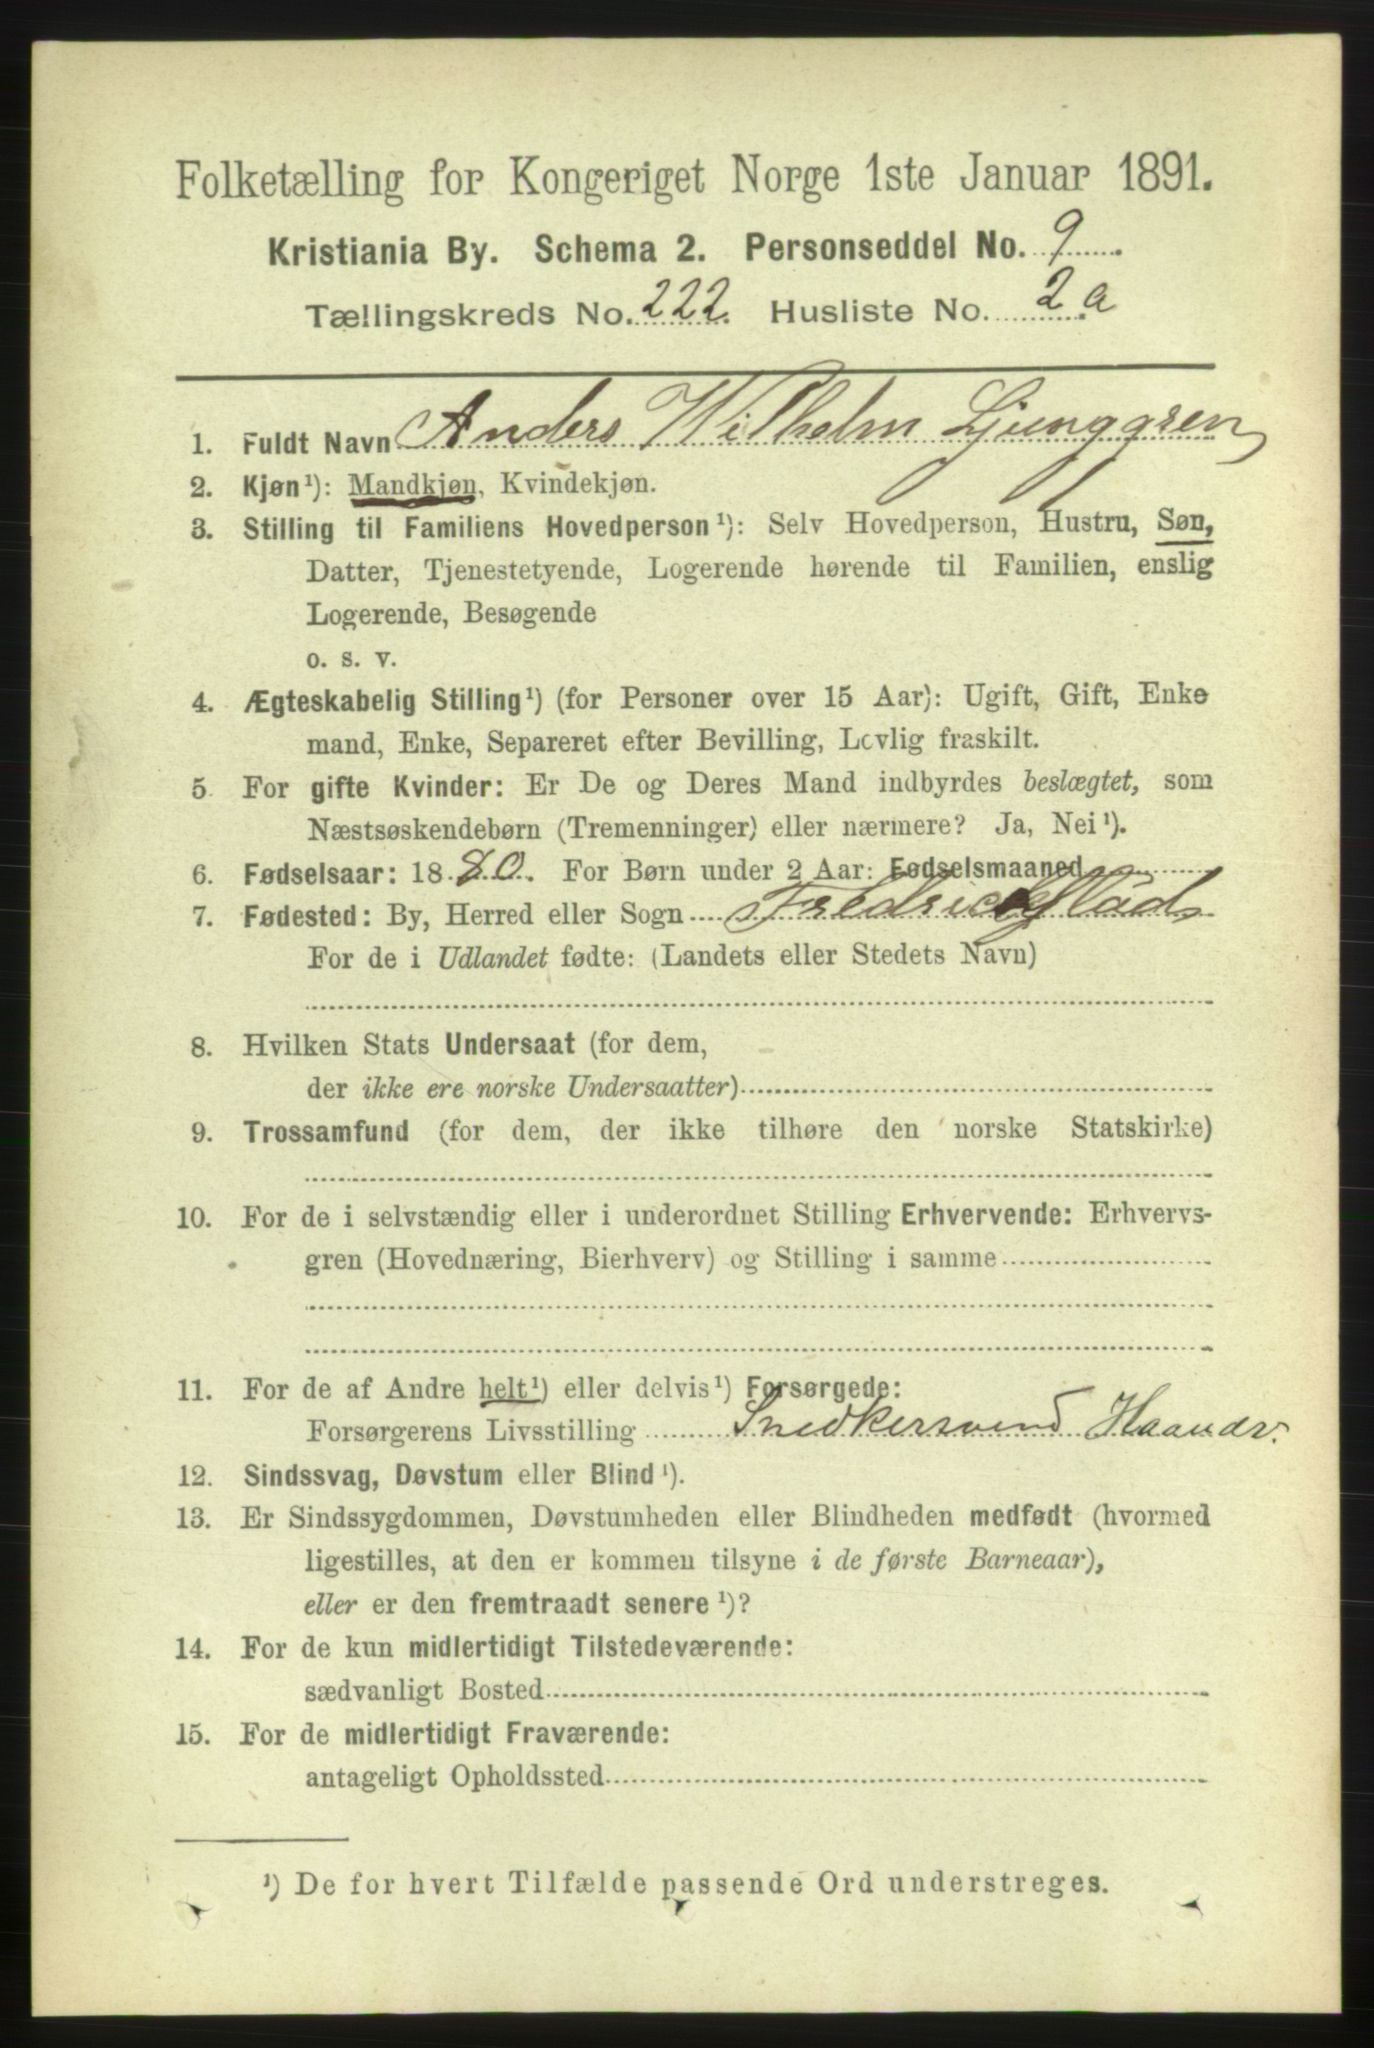 Folketælling for Kongeriget Norge 1ste Januar 1891.
Kristiania By. Schema 2. Personseddel No. 9
Tællingskreds No. 222. Husliste No. 2 a
1. Fuldt Navn Anders Wilhelm Ljunggren
2. Kjøn¹): Mandkjøn, Kvindekjøn.
3. Stilling til Familiens Hovedperson¹): Selv Hovedperson, Hustru, Søn,
Datter, Tjenestetyende, Logerende hørende til Familien, enslig
Logerende, Besøgende
o. s. v.
4. Ægteskabelig Stilling¹) (for Personer over 15 Aar): Ugift, Gift, Enke
mand, Enke, Separeret efter Bevilling, Lovlig fraskilt.
5. For gifte Kvinder: Er De og Deres Mand indbyrdes beslægtet, som
Næstsøskendebørn (Tremenninger) eller nærmere? Ja, Nei¹).
6. Fødselsaar: 1880. For Børn under 2 Aar: Fødselsmaaned
7. Fødested: By, Herred eller Sogn Fredrickstad
For de i Udlandet fødte: (Landets eller Stedets Navn)
8. Hvilken Stats Undersaat (for dem,
der ikke ere norske Undersaatter)
9. Trossamfund (for dem, der ikke tilhøre den norske Statskirke)
10. For de i selvstændig eller i underordnet Stilling Erhvervende: Erhvervs-
gren (Hovednæring, Bierhverv) og Stilling i samme
11. For de af Andre helt¹) eller delvis¹) Forsørgede:
Forsørgerens Livsstilling Snedkersvend Haandv.
12. Sindssvag, Døvstum eller Blind¹).
13. Er Sindssygdommen, Døvstumheden eller Blindheden medfødt (hvormed
ligestilles, at den er kommen tilsyne i de første Barneaar),
eller er den fremtraadt senere¹)?
14. For de kun midlertidigt Tilstedeværende:
sædvanligt Bosted
15. For de midlertidigt Fraværende:
antageligt Opholdssted
¹) De for hvert Tilfælde passende Ord understreges.